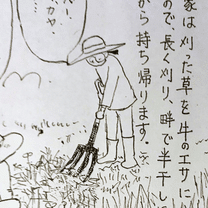 家は刈った草を牛のエサに
ので、長く刈り、畔で半干し
から持ち帰ります。
カヤ、